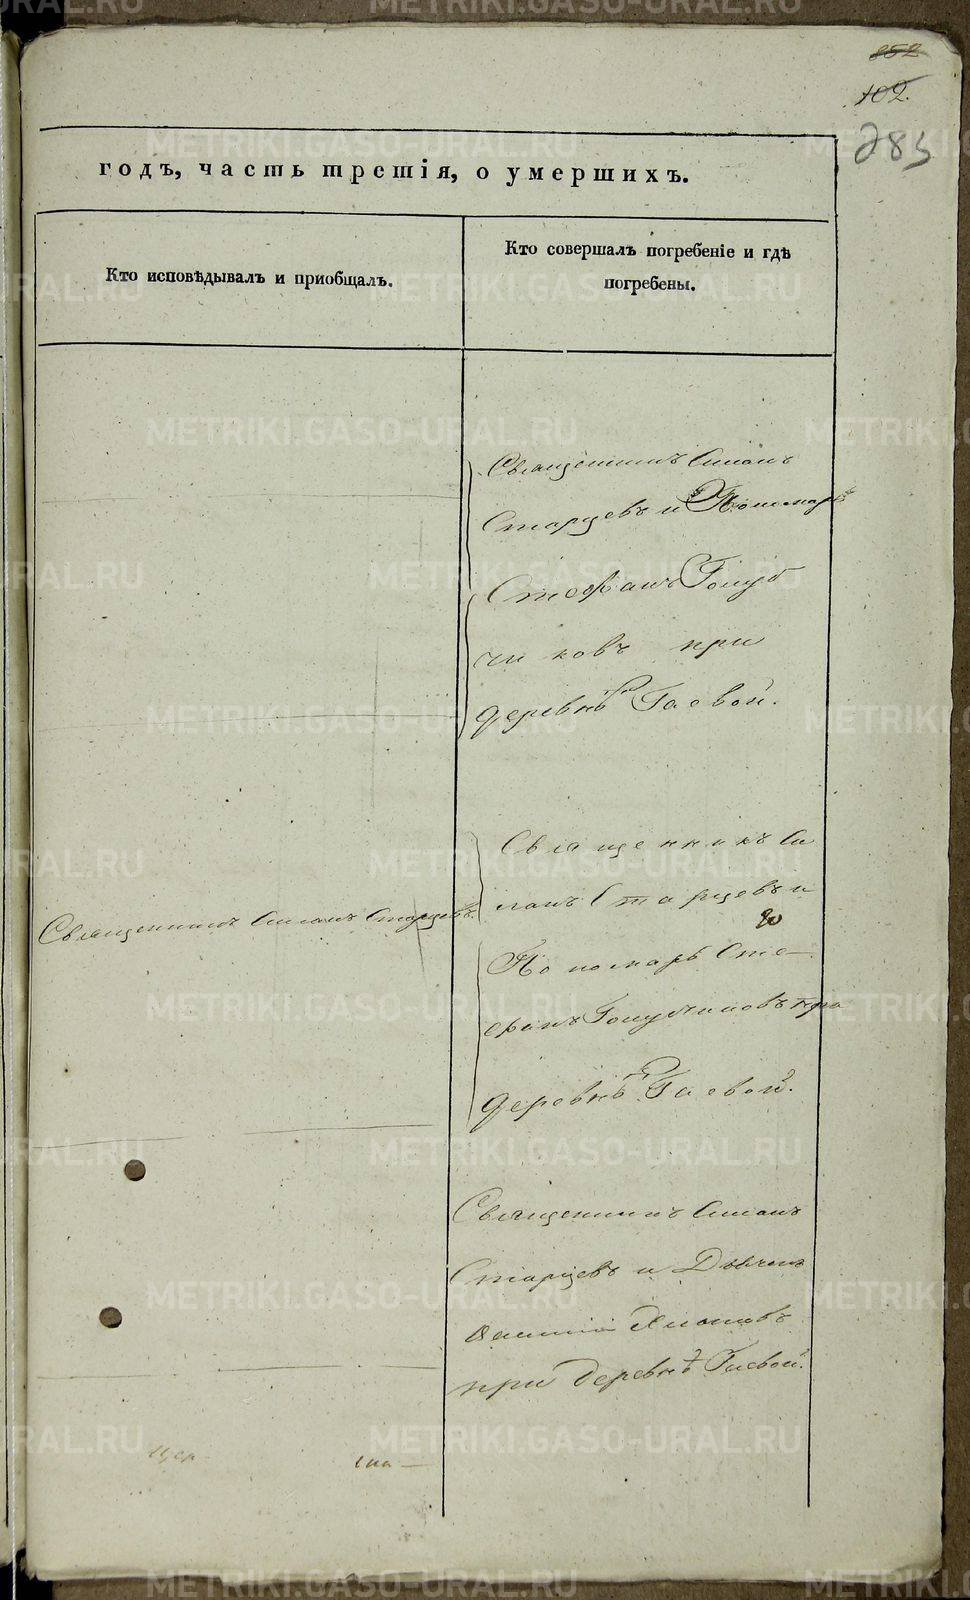 852
102.
283
годъ, часть третія, о умершихъ.
Кто исповѣдывалъ и приобщалъ.
Кто совершалъ погребеніе и гдѣ
погребены.
Священникъ Симонъ
Старцевъ и Пономарь
Стефанъ Голуб
чиковъ при
деревнѣ Гаевой.
Священникъ Симонъ Старцевъ
Священникъ Си
монъ Старцевъ и
Пономарь Сте
фанъ Голубчиковъ при
деревнѣ Гаевой.
Священникъ Симонъ
Старцевъ и Дьячекъ
при деревнѣ Гаевой.
METRIKI.GASO-URAL.RU